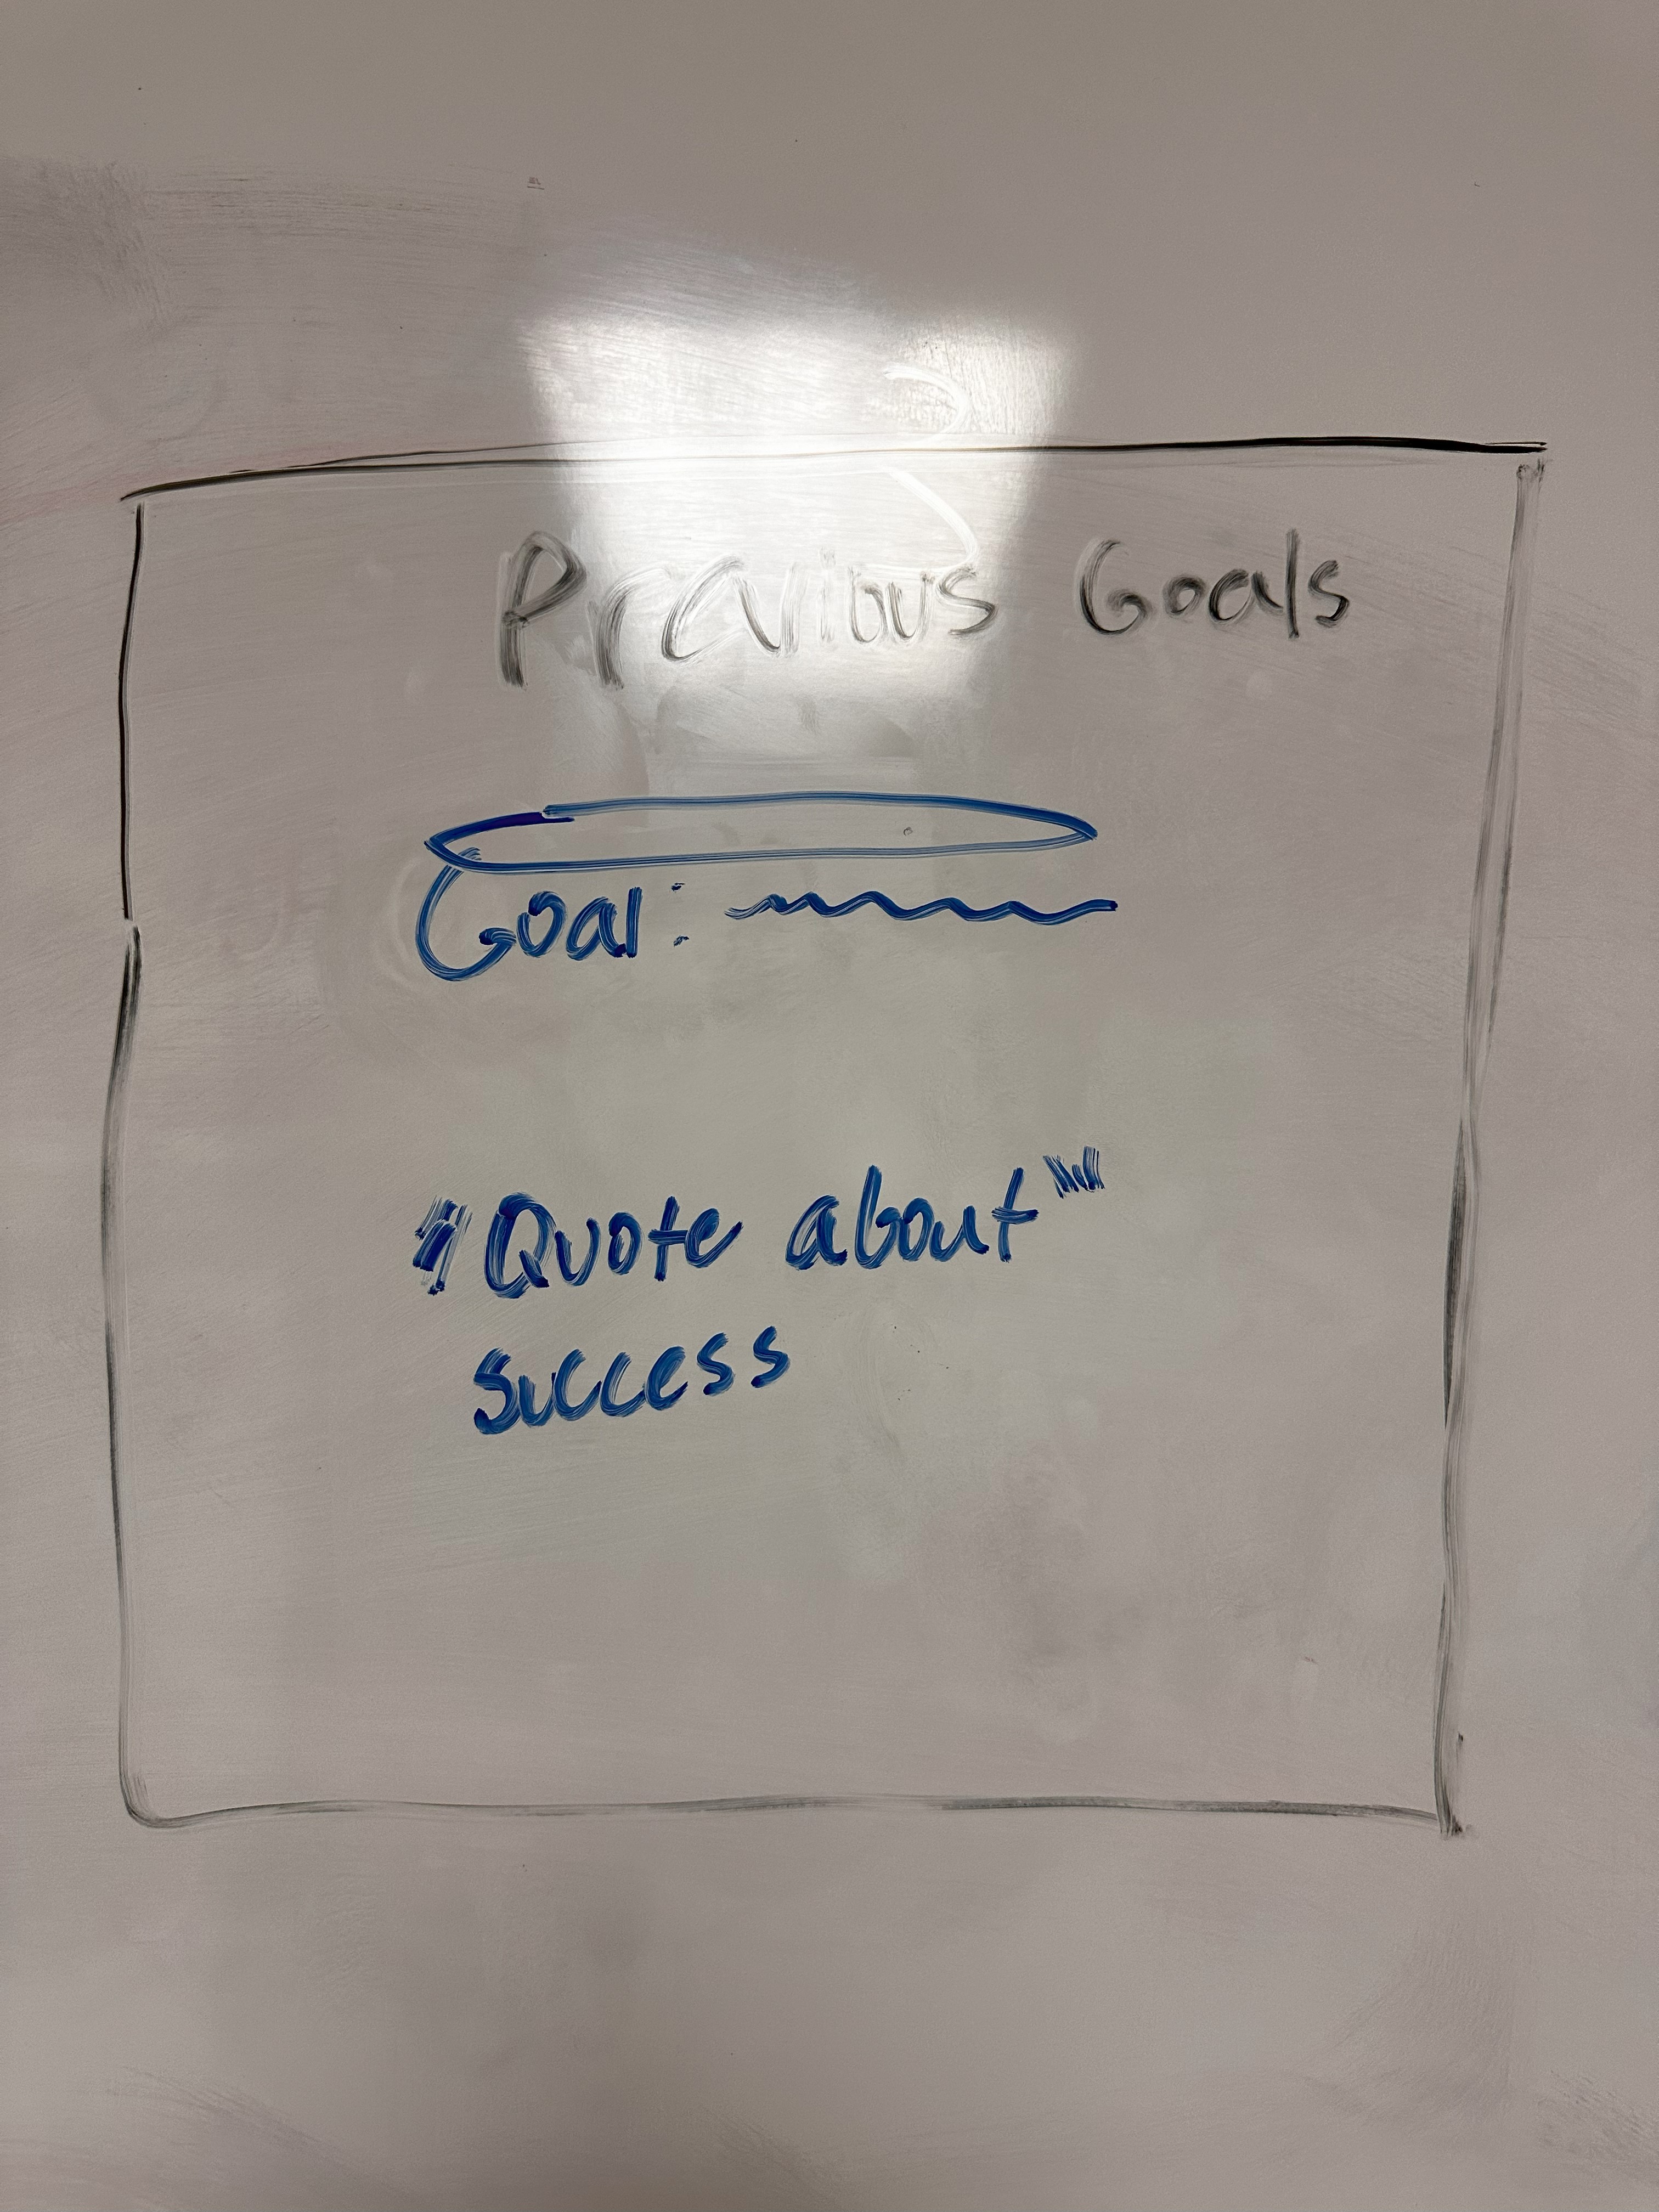 Previous Goals
Goal:
"Quote about"
success